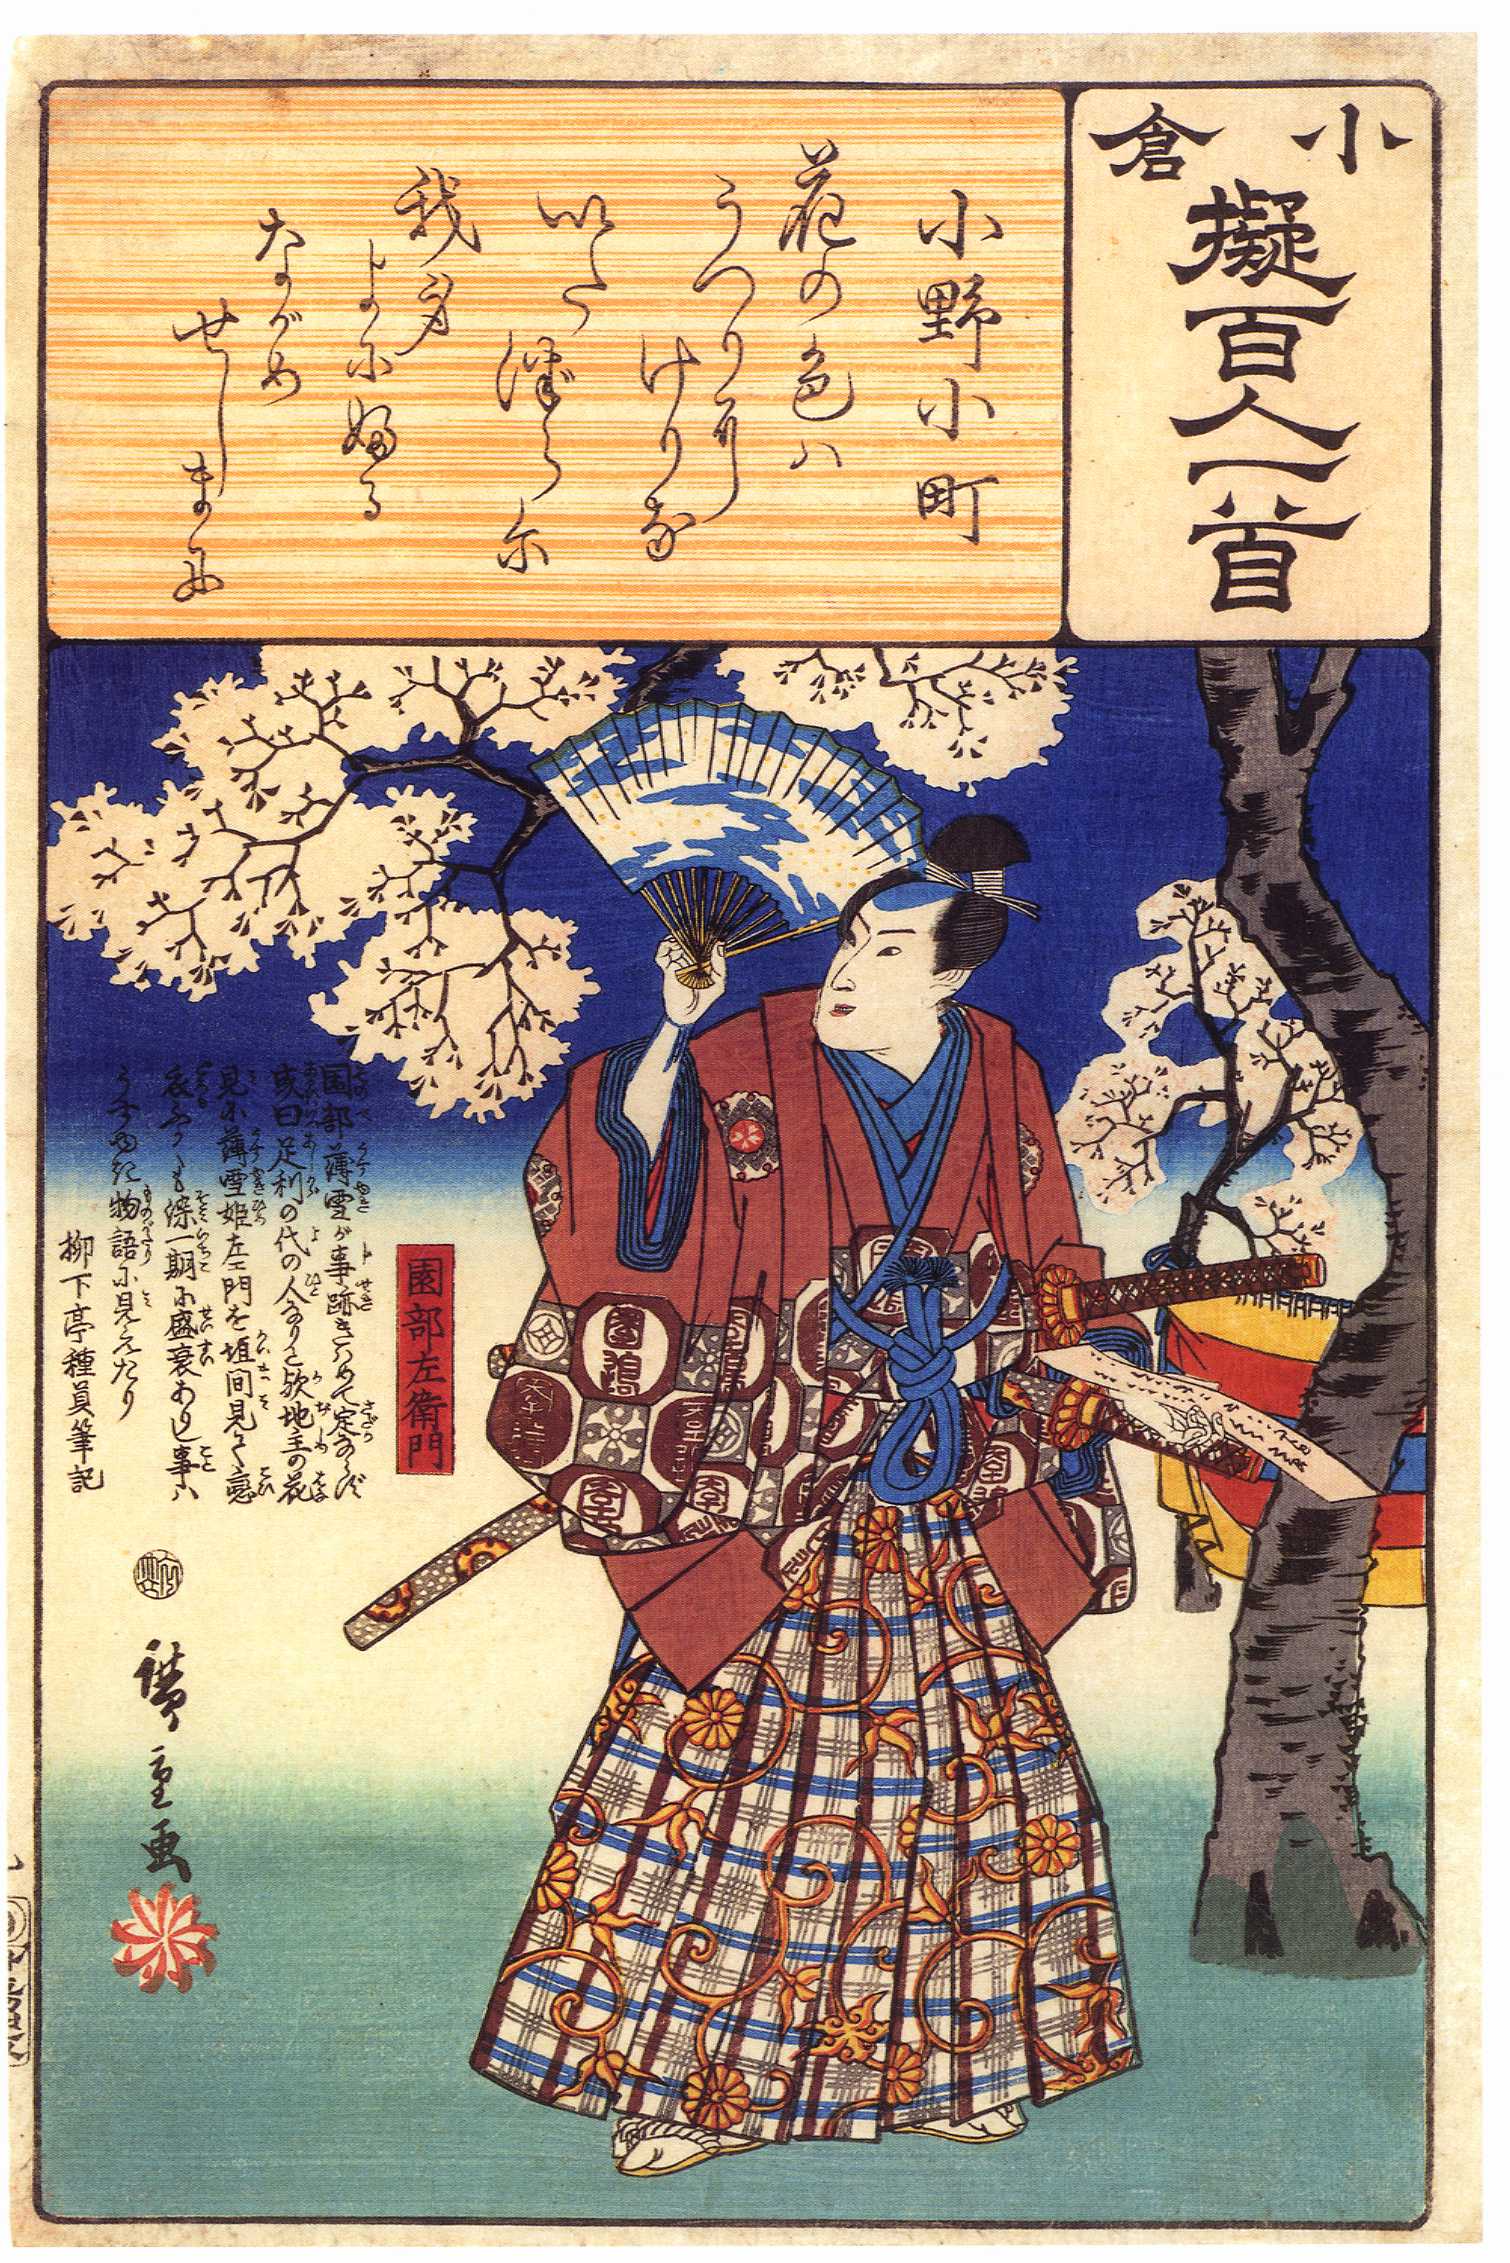 小倉
擬百人一首
小野小町
花の色ハ
うつりに
けりな
いた
津らに
我身
よに婦る
ながめ
せしまに
園部左衛門
園部薄雪が事跡きはめて定かならず
或曰足利の代の人なりと欤地主の花
見に薄雪姫左エ門を垣間見て恋
一期に盛衰ありし事ハ
うすゆき物語に見えたり
柳下亭種員筆記
廣重画